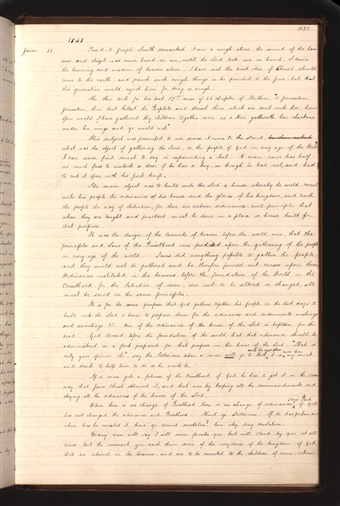 1843
1572
June 11
Presdt. Joseph Smith remarked. I am a rough stone, the sound of the ham-
mer and chisel was never heard on me, until the Lord took me in hand, I desire
the learning and wisdom of heaven alone. I have not the least idea if Christ should
come to the earth and preach such rough things as he preached to the Jews, but that
this generation would reject him for being so rough.
He then took for his text 37th verse of 23 chapter of Matthew. "O Jerusalem,
Jerusalem, thou that killest the Prophets and stonest them which are sent unto thee, how
often would I have gathered thy children together, even as a Hen gathereth her chickens
under her wings and ye would not."
This subject was presented to me since I came to the stand.
What was the object of gathering the Jews, or the people of God in any age of the World.
I can never find much to say in expounding a text. A man never has half
so much fuss to unlock a door if he has a key, as though he had not, and had
to cut it open with his Jack knife.
The main object was to build unto the Lord a house, whereby he could reveal
unto his people the ordinances of his house, and the glories of his kingdom, and teach
the people the way of salvation; for there are certain ordinances and principles that
when they are taught and practised must be done in a place or house built for
that purpose.
It was the design of the Councils of heaven before the world was, that the
principles and laws of the Priesthood were predicated upon the gathering of the people
in every age of the world. Jesus did everything possible to gather the people,
and they would not be gathered and he therefore poured out curses upon them.
Ordinances instituted in the heavens before the foundation of the World in the
Priesthood for the Salvation of men, are not to be altered or changed, all
must be saved on the same principles.
It is for the same purpose that God gathers together his people in the last days to
build unto the Lord a house to prepare them for the ordinances and endowments washings
and anointings &c. One of the ordinances of the house of the Lord is baptism for the
dead. God decreed before the foundation of the world that that ordinance should be
administered in a font prepared for that purpose in the house of the Lord. "This is
only your opinion Sir" say the Sectarian
If a man gets a fulness of the Priesthood of God he has to get it in the same
way that Jesus Christ obtained it, and that was by keeping all the commandments and
obeying all the ordinances of the house of the Lord.
Where there is no change of Priesthood there is no change of ordinances, says Paul. If God
has not changed the ordinances and Priesthood. Howl, ye Sectarians. If he has
when has he revealed it, have ye turned revelators? Then why deny revelation.
Many men will say I will never forsake you, but will stand by you at all
times. But the moment you teach them some of the mysteries of the kingdom of God
that are retained in the heavens, and are to be revealed to the children of men, when